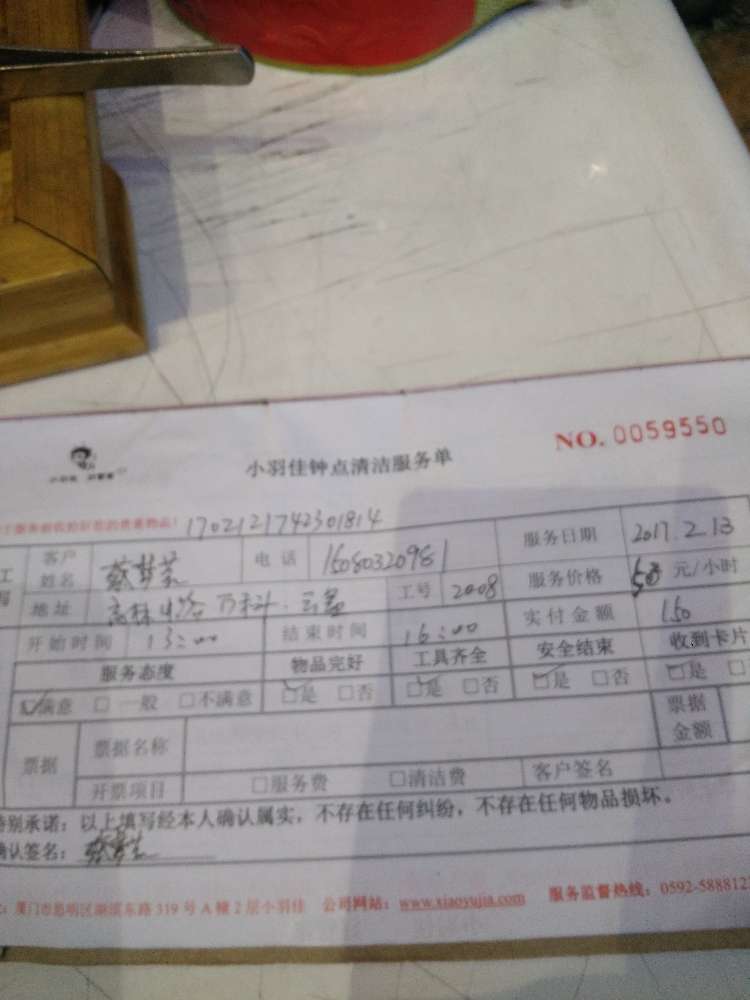 NO. 0059550
小羽佳钟点清洁服务单
1702121742301814
客户姓名 电话 15080320981 服务日期 2017.2.13
地址 工号 2008 服务价格 50 元/小时
开始时间 13:00 结束时间 16:00 实付金额 150
服务态度 物品完好 工具齐全 安全结束 收到卡片
☑满意 □一般 □不满意 ☑是 □否 ☑是 □否 ☑是 □否 ☑是 □
票据 票据名称 票据金额
开票项目 □服务费 □清洁费 客户签名
特别承诺：以上填写经本人确认属实，不存在任何纠纷，不存在任何物品损坏。
确认签名：
厦门市思明区湖滨东路 319 号 A 幢 2 层小羽佳 公司网站：www.xiaoyujia.com 服务监督热线：0592-588812